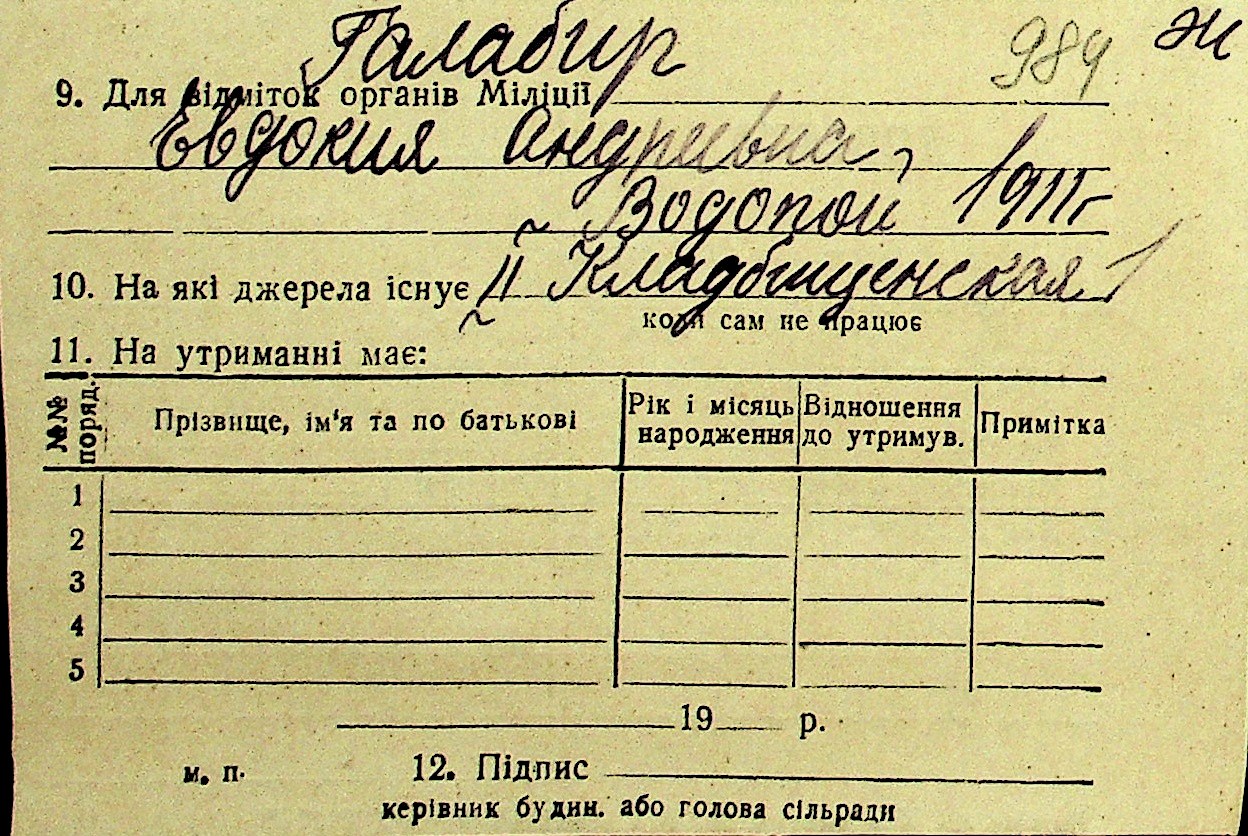 Галабир 984 Ж
9. Для відміток органів Міліції
Евдокия Андривна,
Водопой 1911г
10. На які джерела існує II Кладбищенская 1
коли сам не працює
11. На утриманні має:
№№ поряд. Прізвище, ім'я та по батькові Рік і місяць народження Відношення до утримув. Примітка
1
2
3
4
5
19 р.
м. п. 12. Підпис
керівник будин. або голова сільради